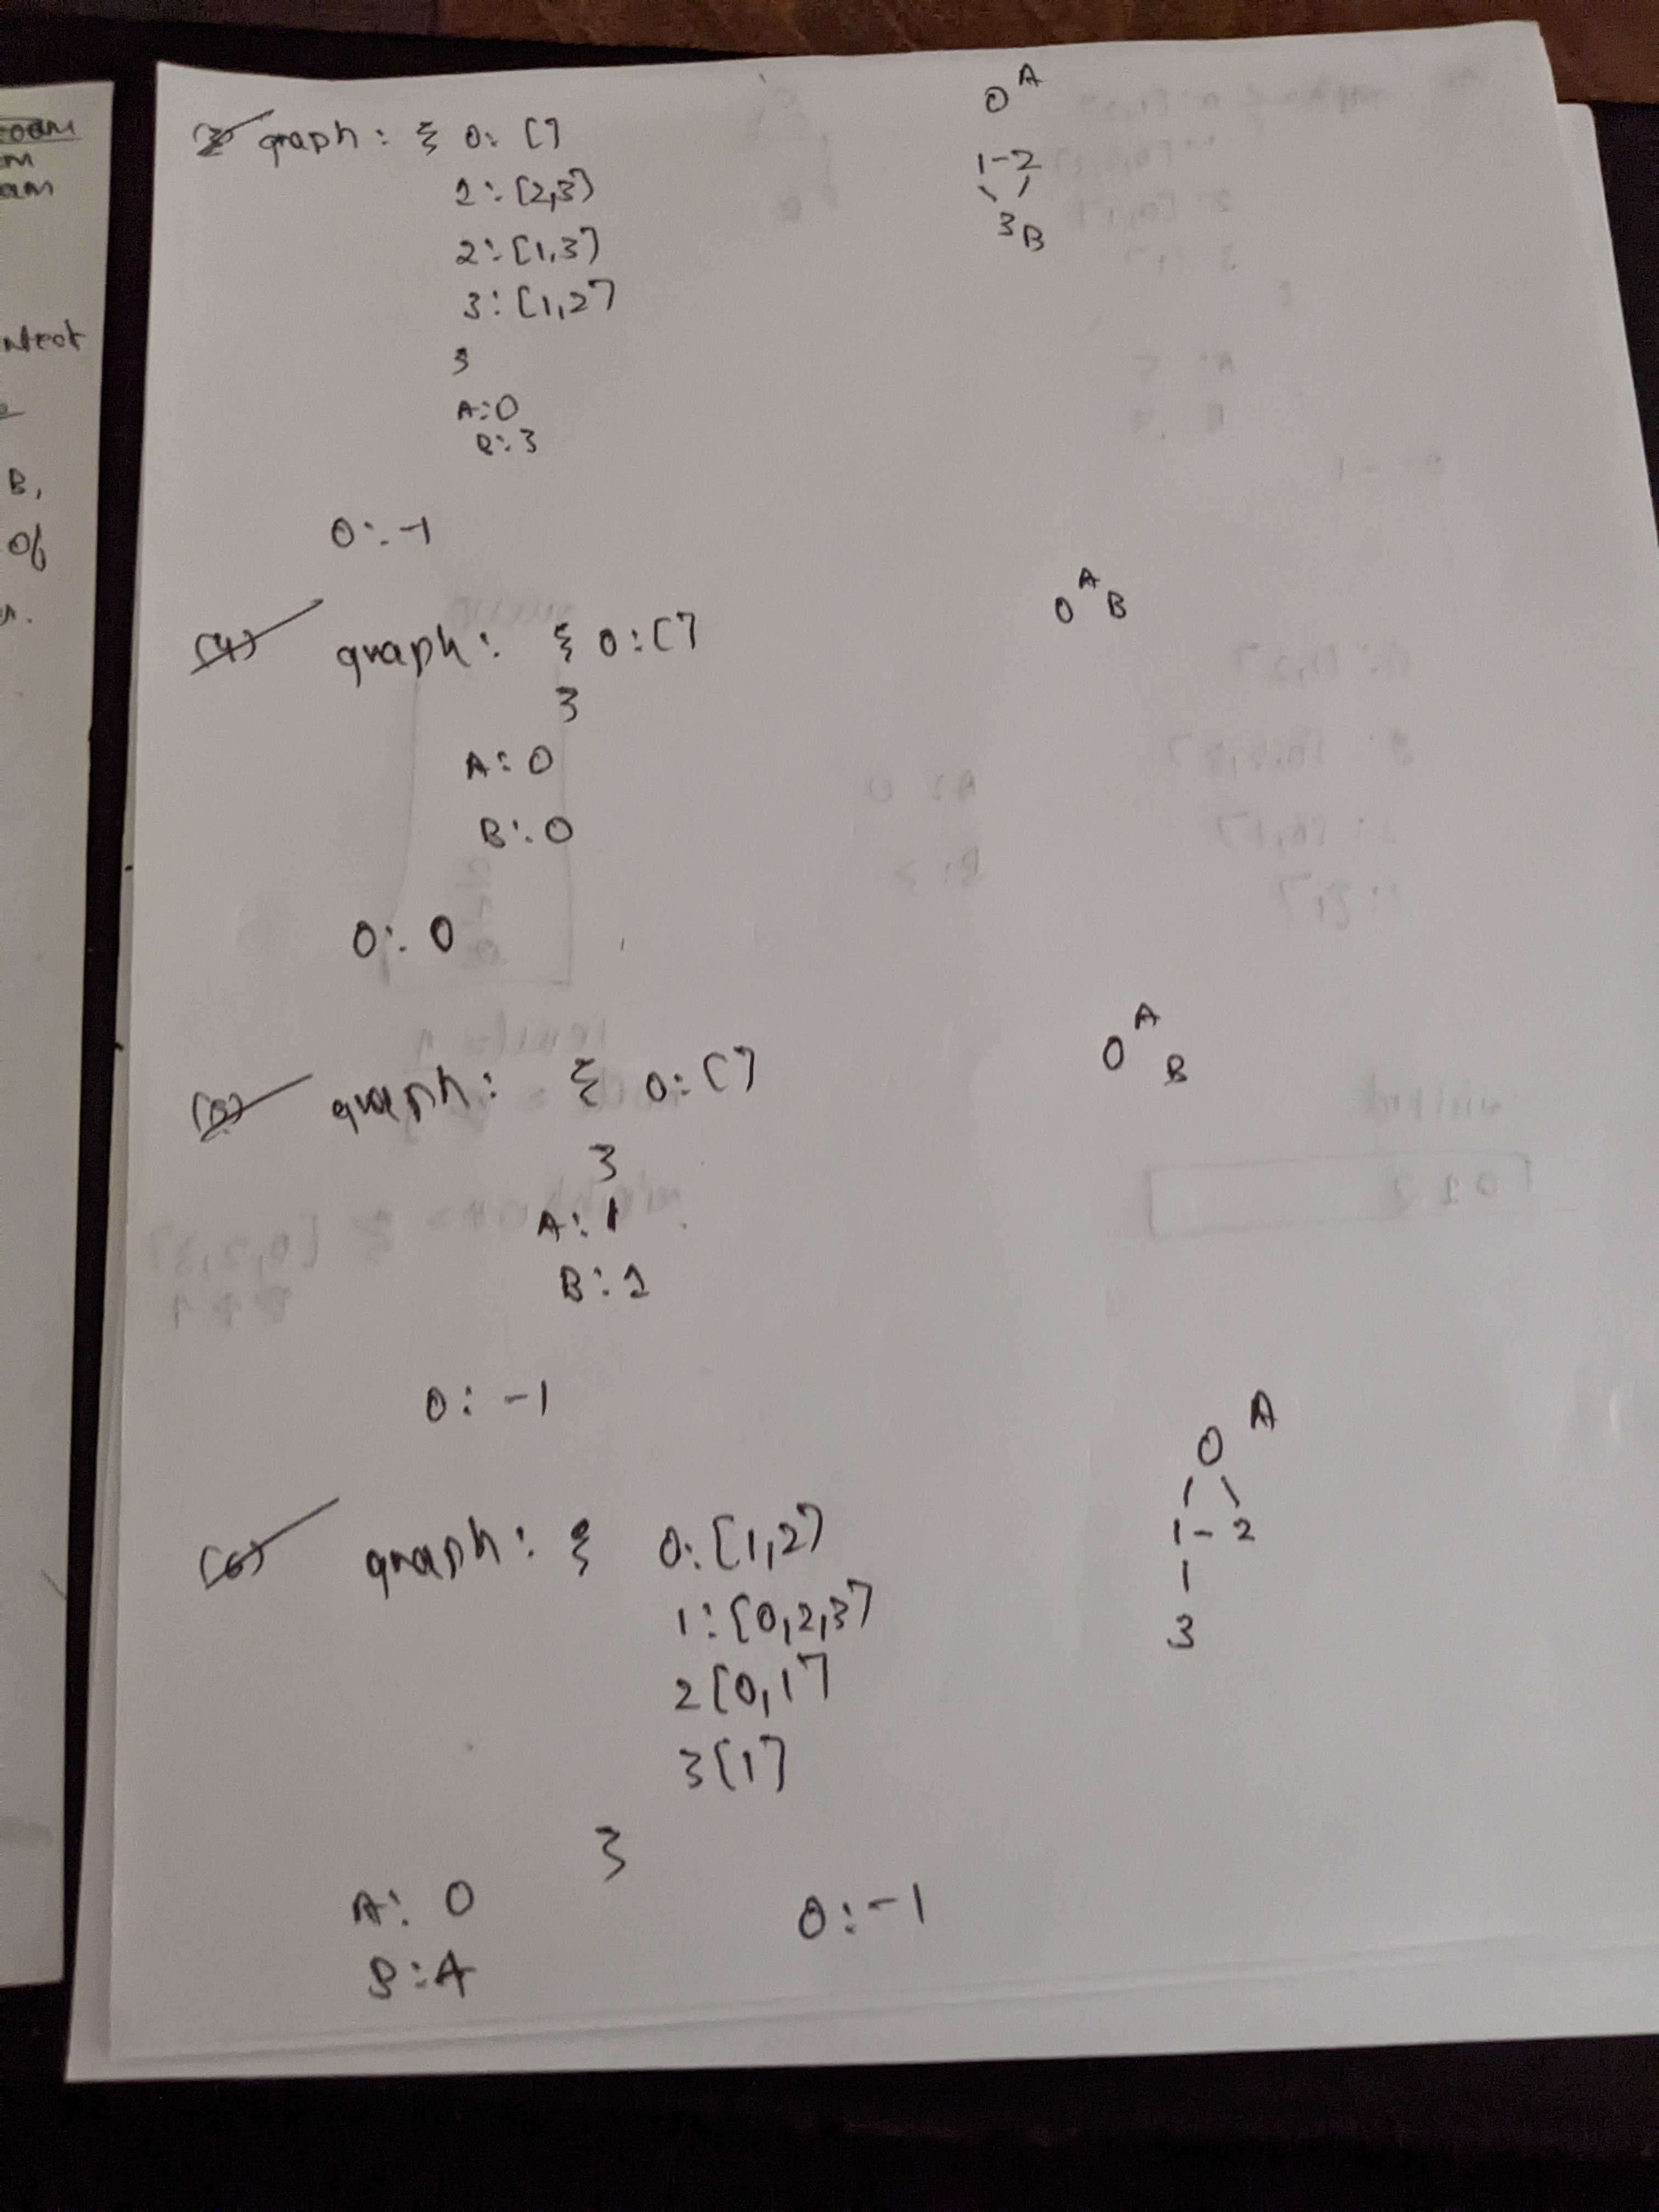 OOM
m
am
ntest
B,
Of
n.
3 graph: { 0: []
1: [2,3]
2: [1,3]
3: [1,2]
}
A: 0
B: 3
O: -1
0 A
1-2
\ /
3 B
(4) graph: { 0: []
}
A: 0
B: 0
O: 0
0 A B
(5) graph: { 0: []
}
A: 1
B: 1
O: -1
0 A
B
(6) graph: { 0: [1,2]
1: [0,2,3]
2 [0,1]
3 [1]
}
A: 0
B: 4
O: -1
0 A
/ \
1 - 2
|
3